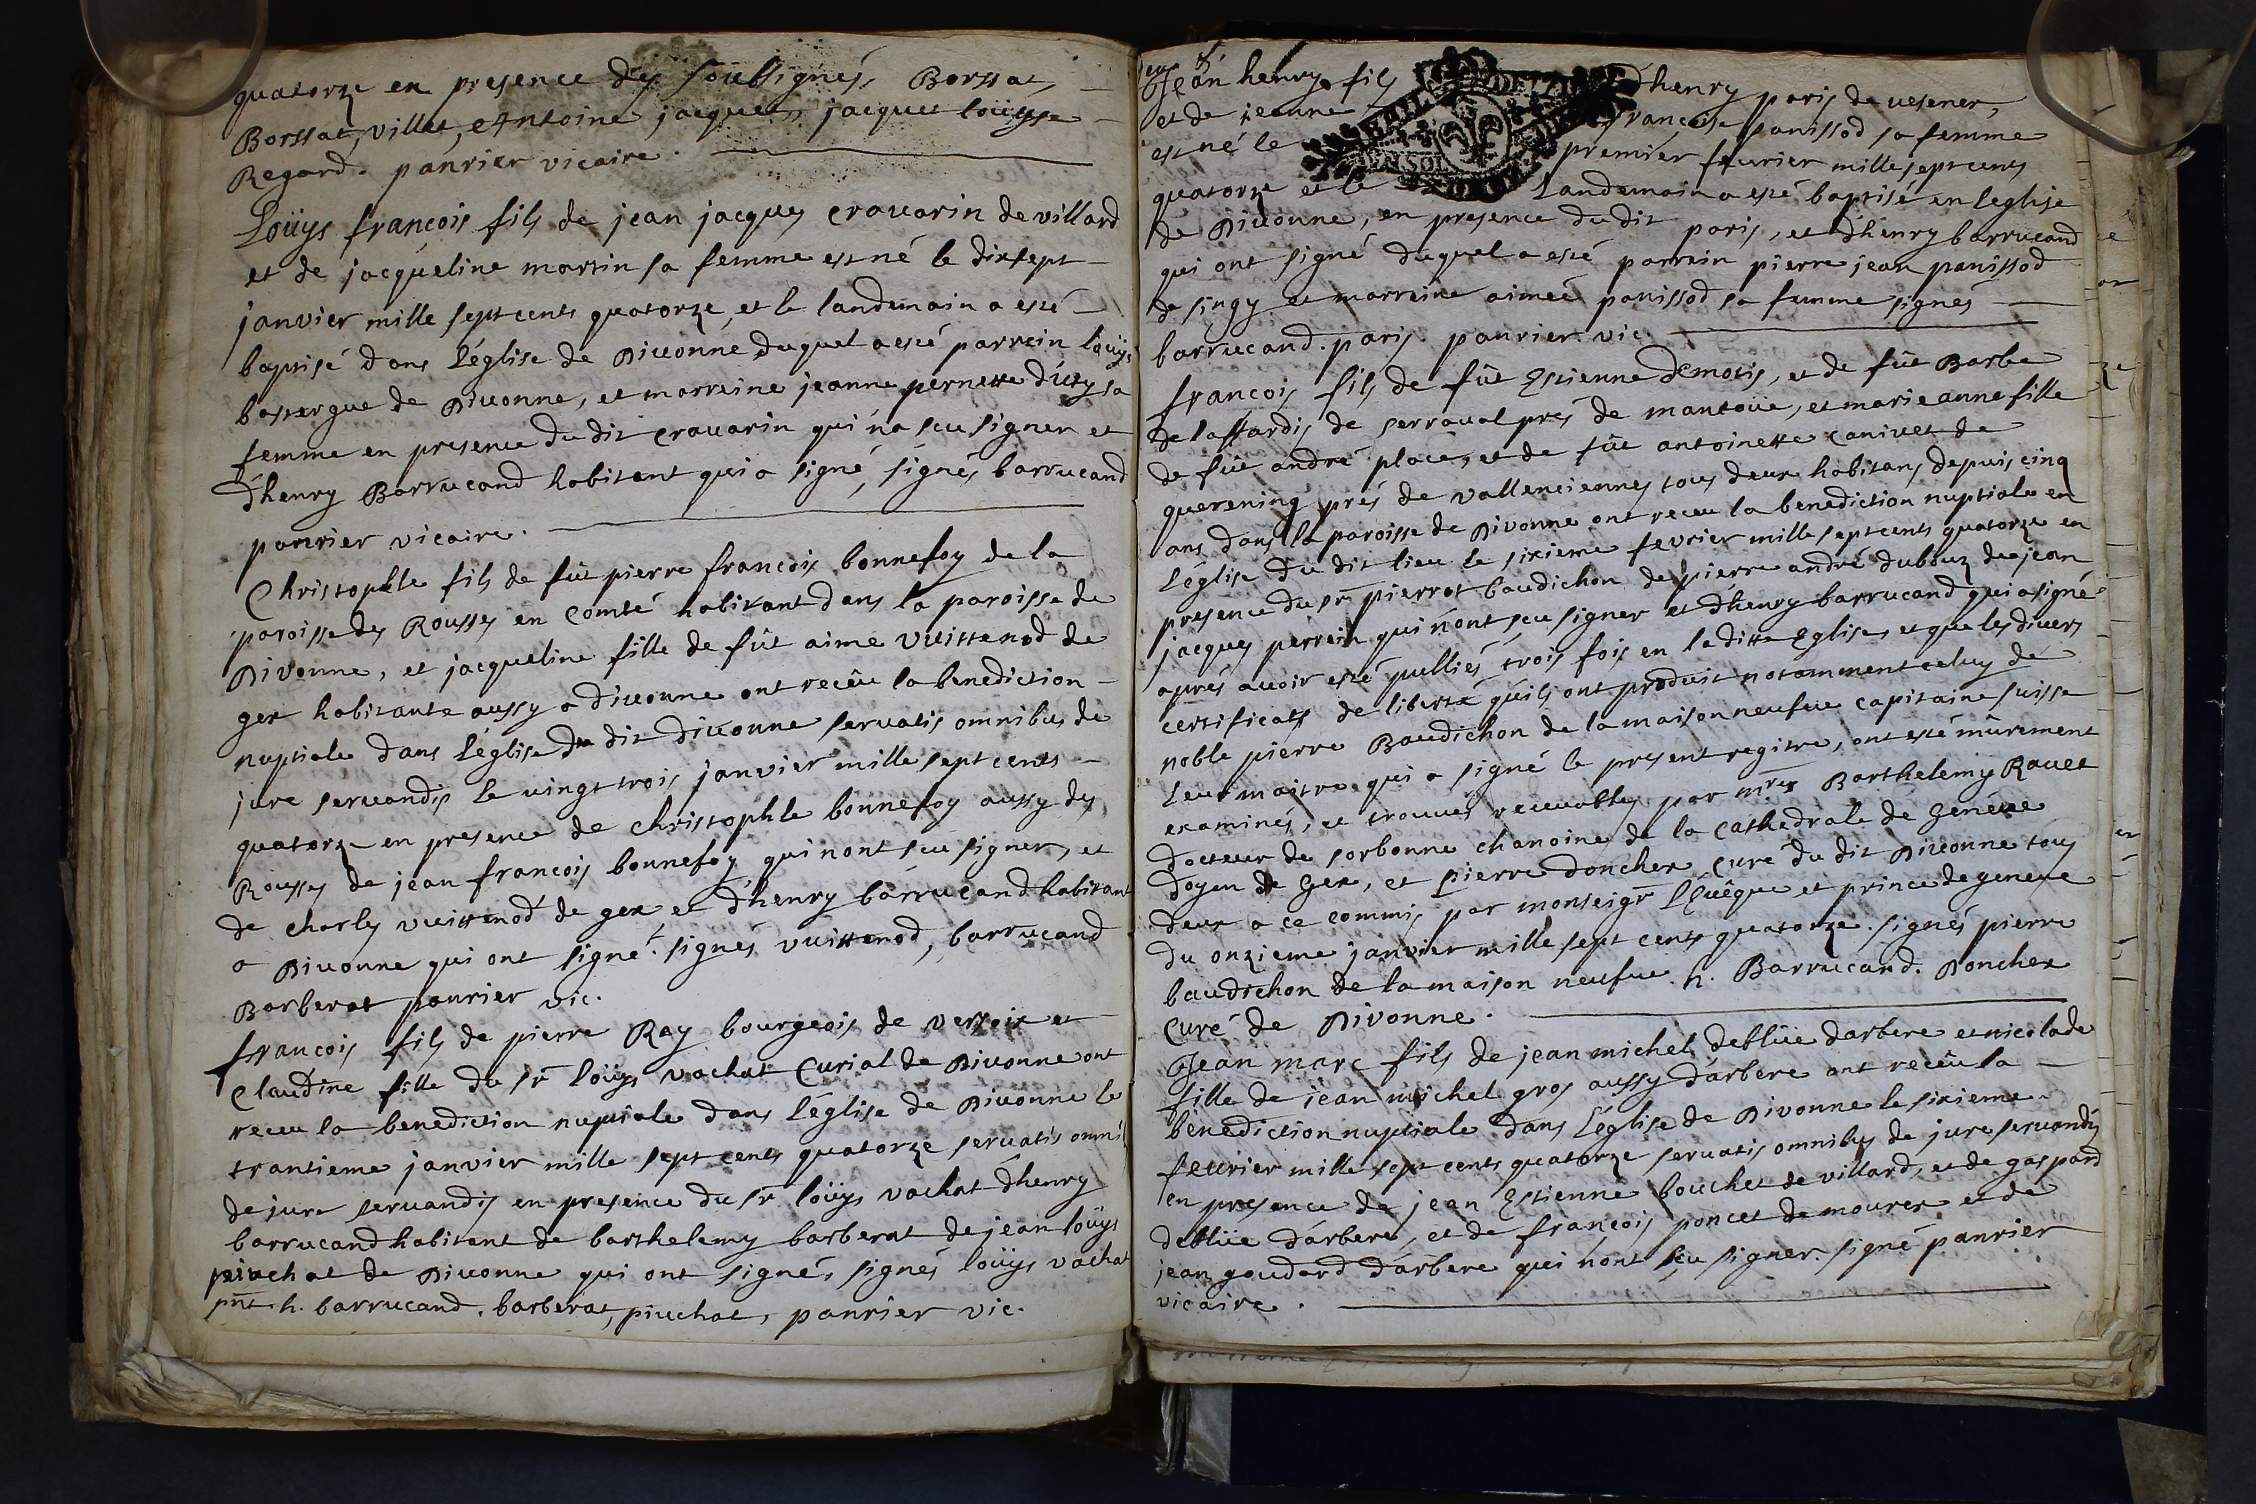 quatorze en presence des soubsignés, Borssat,
Borssat, villet, Antoine jacquet, jacquet loüysse
Regard. panrier vicaire.
Loüys françois fils de jean jacques crauarin de villard
et de jacqueline martin sa femme est né le dixsept
janvier mille sept cents quatorze, et le landemain a esté
baptisé dans l'église de Diuonne, duquel a esté parrein loüys
bastergue de Diuonne, et marreine jeanne pernette sa
femme en presence du dit crauarin qui n'a sceu signer et
d'henry Barrucand habitant qui a signé, signés, barrucand
panrier vicaire.
Christophle fils de fût pierre françois bonnefoy de la
paroisse des Rousses en Comté habitant dans la paroisse de
Divonne, et jacqueline fille de fût aimé vuittenod de
gex habitante aussy a diuonne ont recêu la benediction
nuptiale dans l'église du dit diuonne servatis omnibus de
jure servandis le vingt trois janvier mille sept cents
quatorze en presence de christophle bonnefoy aussy des
Rousses de jean françois bonnefoy, qui n'ont sceu signer, et
de charles vuittenod de gex et d'henry barrucand habitant
a Diuonne qui ont signé. signés vuittenod, barrucand
Barberat panrier vic.
françois fils de pierre Ray bourgeois de versoix et
Claudine fille du sr loüys vachat Curial de Diuonne ont
receu la benediction nuptiale dans l'église de Diuonne le
trantieme janvier mille sept cents quatorze servatis omni
de jure servandis en presence du sr loüys vachat d'henry
barrucand habitant de barthelemy barberat de jean loüys
piuchat de Diuonne qui ont signés, signés loüys vachat
pnt. h. barrucand, barberat, piuchat, panrier vic.
Jean henry fils d'henry paris de vesener,
et de jeanne françoise panissod sa femme
est né le premier feurier mille sept cents
quatorze et le landemain a esté baptisé en l'eglise
de Diuonne, en presence du dit paris, et d'henry barrucand
qui ont signé duquel a esté parrein pierre jean panissod
de singy et marreine aimeé panissod sa femme signés
barrucand. paris. panrier. vic.
françois fils de fût Estienne Demotis, et de fût Barbe
delassardis de serraval pres de mantoüe, et marie anne fille
de fût andré place, et de fût antoinette canivet de
querening prés de vallenciennes tous deux habitans depuis cinq
ans dans la paroisse de Divonne ont receu la benediction nuptiale en
l'église du dit lieu le sixieme fevrier mille sept cents quatorze en
presence du sr pierrot baudichon de pierre andré dubbuz de jean
jacques perrein qui n'ont sceu signer et d'henry barrucand qui a signé
aprés avoir esté publiés trois fois en la ditte Eglise, et que les divers
certificats de liberté qu'ils ont produit notamment celuy de
noble pierre Baudichon de la maison neufue capitaine suisse
leur maitre qui a signé le present regitre, ont esté mûrement
examinés, et trouvés recevables par mres Barthelemy Rauet
docteur de sorbonne chanoine de la cathedrale de Genéue
doyen de Gex, et pierre doncher curé du dit Diuonne tous
deux a ce commis par monseigr l'Evêque et prince de geneue
du onzieme janvier mille sept cents quatorze. signés pierre
baudichon de la maison neufue. h. Barrucand. Doncher
Curé de Divonne.
Jean marc fils de jean michel deblüe d'arbere et nicolade
fille de jean michel gros aussy d'arbere ont recêu la
benediction nuptiale dans l'église de Divonne le sixieme
feurier mille sept cents quatorze servatis omnibus de jure servandis
en presence de jean Estienne bouchet de villard, et de gaspard
deblüe d'arbere, et de françois poncet de mourex et de
jean goudard d'arbere qui n'ont sçu signer. signé panrier
vicaire.